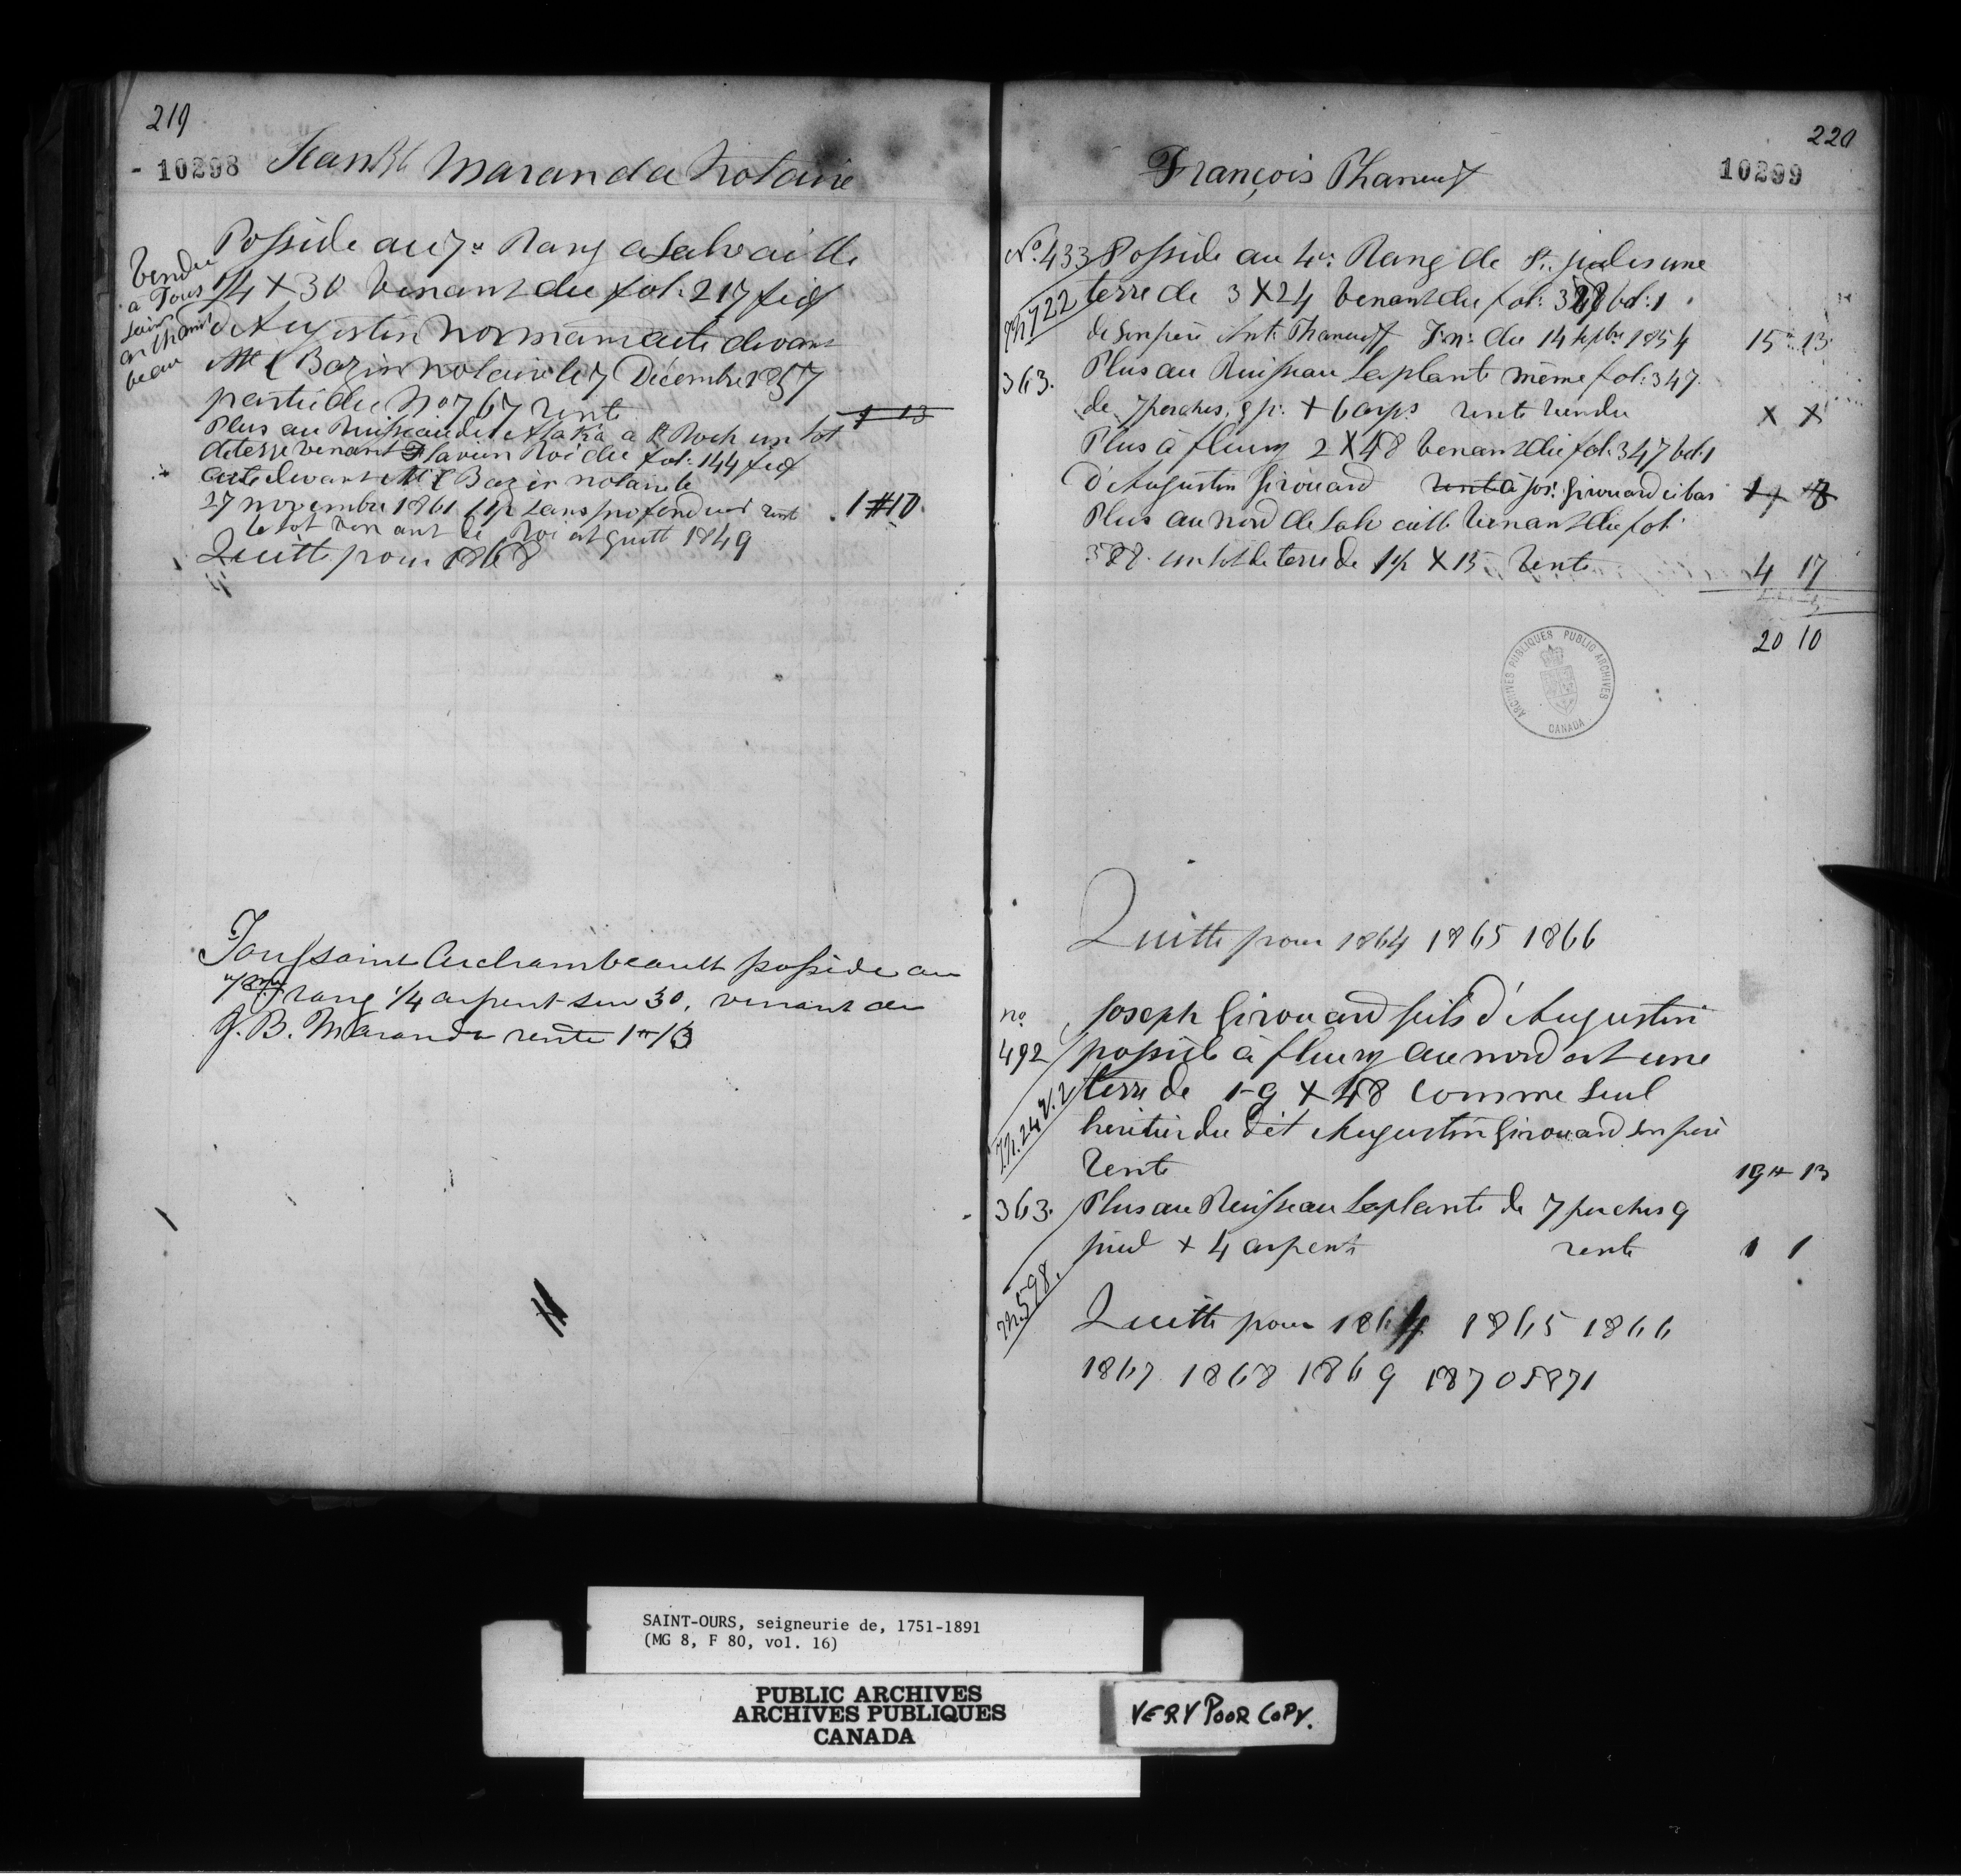 219
10298 Jean Bte Maranda Notaire
Vendu
à Tous
saint
archam
beau
Possède au 7e Rang a Salvaille
1/4 X 30 venant du fol: 217 fief
d'Augustin Normam acte devant
Mtre Bazin notaire le 7 Décembre 1857
partie du No 767 rente 1 13
Plus au Ruisseau de Laka à St Roch un lot
de terre venant Flavien Roi du fol: 144 fief
acte devant Bazin notaire le
27 novembre 1861 sans profondeur rente 1 # 10
le lot venant de Roi est quitt 1849
Quitte pour 1868
Toussaint Archambeault possède au
7eme rang 1/4 arpent sur 30, venant de
J. B. Maranda rente 1 # 13
220
10299
François Phaneuf
No. 433 Possède au 4e: Rang de St. judes une
m 722 terre de 3 X 24 venant du fol: bd: 1
de son père Ant: Phaneuf du 14 septbre 1854 15 13
363. Plus au Ruisseau Laplante même fol: 347
de 7 perches, 9 p. X 6 arps rente vendu X X
Plus à fleury 2 X 48 venant du fol: 347 bd: 1
d'Augustin Girouard rente à Jos: Girouard ci bas
Plus au nord de Salvaille venant du fol:
un lot de terre de X 15 rente 4 17
20 10
ARCHIVES PUBLIQUES PUBLIC ARCHIVES
CANADA
Quitte pour 1864 1865 1866
no. Joseph Girouard fils d'Augustin
492 possède à fleury au nord est une
m. 24 V. 2 terre de 1-9 X 48 comme seul
heritier du dit Augustin Girouard son père
rente 19 # 13
363. Plus au Ruisseau Laplante de 7 perches 9
pied X 4 arpents rente 1 1
m 598.
Quitte pour 1864 1865 1866
1867 1868 1869 1870 1871
SAINT-OURS, seigneurie de, 1751-1891
(MG 8, F 80, vol. 16)
PUBLIC ARCHIVES
ARCHIVES PUBLIQUES
CANADA
VERY POOR COPY.